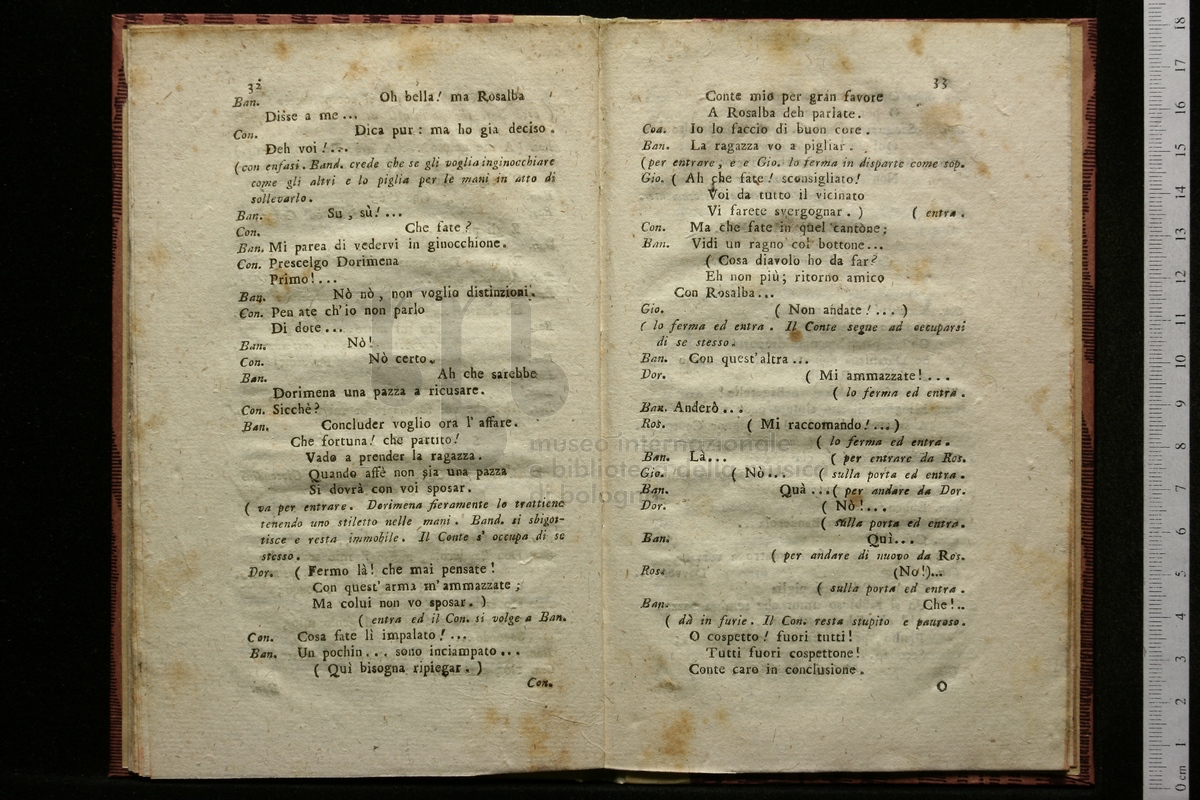 32
Ban. Oh bella! ma Rosalba
Disse a me ...
Con. Dica pur: ma ho gia deciso.
Deh voi!...
(con enfasi. Band. crede che se gli voglia inginocchiare
come gli altri e lo piglia per le mani in atto di
sollevarlo.
Ban. Su, sù!...
Con. Che fate?
Ban. Mi parea di vedervi in ginocchione.
Con. Prescelgo Dorimena
Primo!...
Ban. Nò nò, non voglio distinzioni.
Con. Pen ate ch'io non parlo
Di dote...
Ban. Nò!
Con. Nò certo.
Ban. Ah che sarebbe
Dorimena una pazza a ricusare.
Con. Sicchè?
Ban. Concluder voglio ora l'affare.
Che fortuna! che partito!
Vado a prender la ragazza.
Quando affè non sia una pazza
Si dovrà con voi sposar.
( va per entrare. Dorimena fieramente lo trattiene
tenendo uno stiletto nelle mani. Band. si sbigot-
tisce e resta immobile. Il Conte s' occupa di se
stesso.
Dor. ( Fermo là! che mai pensate!
Con quest' arma m'ammazzate;
Ma colui non vo sposar. )
( entra ed il Con. si volge a Ban.
Con. Cosa fate lì impalato!...
Ban. Un pochin... sono inciampato...
( Quì bisogna ripiegar. )
Con.
33
Conte mio per gran favore
A Rosalba deh parlate.
Con. Io lo faccio di buon core.
Ban. La ragazza vo a pigliar.
(per entrare, e e Gio. lo ferma in disparte come sop.
Gio. ( Ah che fate! sconsigliato!
Voi da tutto il vicinato
Vi farete svergognar. ) ( entra.
Con. Ma che fate in quel cantòne;
Ban. Vidi un ragno col bottone...
( Cosa diavolo ho da far?
Eh non più; ritorno amico
Con Rosalba...
Gio. ( Non andate!... )
( lo ferma ed entra. Il Conte segue ad occuparsi
di se stesso.
Ban. Con quest'altra...
Dor. ( Mi ammazzate!...
( lo ferma ed entra.
Ban. Anderò...
Ros. ( Mi raccomando!...)
( lo ferma ed entra.
Ban. Là... ( per entrare da Ros.
Gio. ( Nò... ( sulla porta ed entra.
Ban. Quà ...( per andare da Dor.
Dor. ( Nò!...
( sulla porta ed entra.
Ban. Quì...
( per andare di nuovo da Ros.
Ros. (No!)...
( sulla porta ed entra.
Ban. Che!..
( dà in furie. Il Con. resta stupito e pauroso.
O cospetto! fuori tutti!
Tutti fuori cospettone!
Conte caro in conclusione.
O
museo internazionale
e biblioteca della musica
di bologna
18
17
16
15
14
13
12
11
10
9
8
7
6
5
4
3
2
1
0 cm